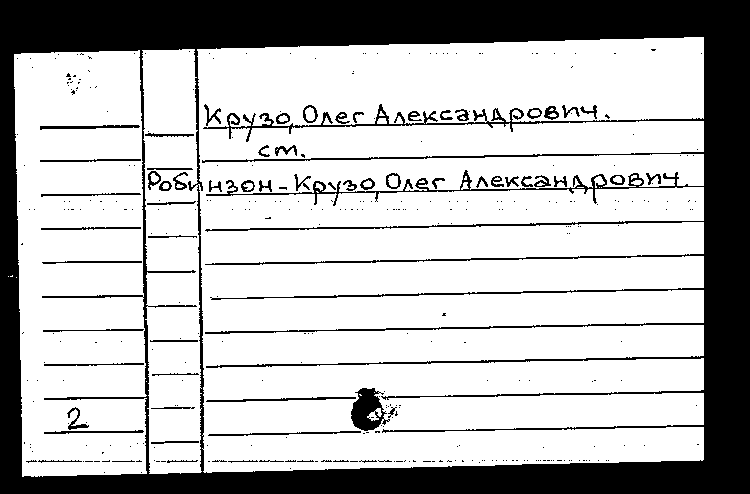 Крузо, Олег Александрович.
ст.
Робинзон-Крузо, Олег Александрович.
2